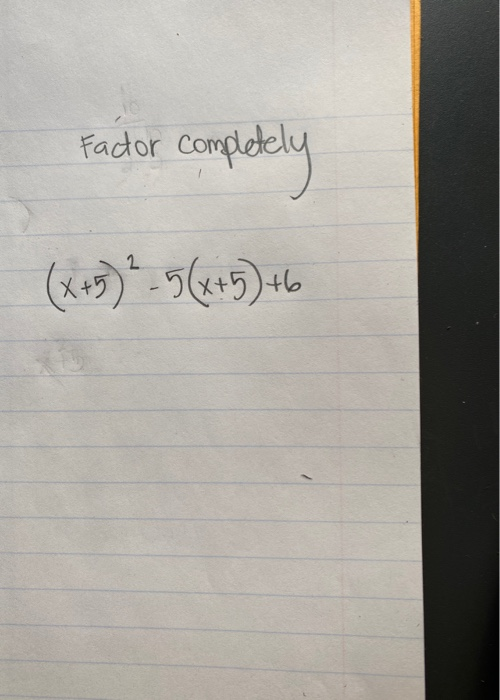 Factor completely
(x+5)² - 5(x+5)+6